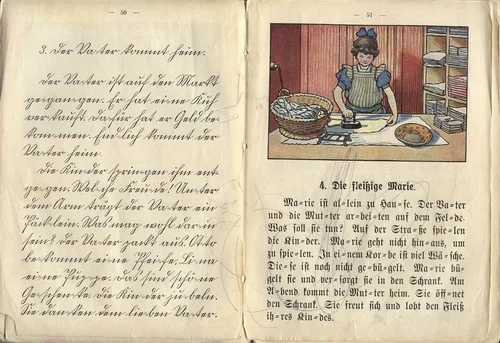 — 50 —
3. Der Va-ter kommt heim.
Der Va-ter ist auf den Markt
ge-gan-gen. Er hat ei-ne Kuh
ver-kauft. Da-für hat er Geld be-
kom-men. End-lich kommt der
Va-ter heim.
Die Kin-der sprin-gen ihm ent-
ge-gen. Wel-che Freu-de! Un-ter
dem Arm trägt der Va-ter ein
Päck-lein. Was mag wohl dar-in
sein? Der Va-ter packt aus. Ot-to
be-kommt ei-ne Pfei-fe. Li-na
ei-ne Pup-pe. Das sind schö-ne
Ge-schen-ke. Die Kin-der ju-beln.
Sie dan-ken dem lie-ben Va-ter.
— 51 —
4. Die fleißige Marie.
Ma-rie ist al-lein zu Hau-se. Der Va-ter
und die Mut-ter ar-bei-ten auf dem Fel-de.
Was soll sie tun? Auf der Stra-ße spie-len
die Kin-der. Ma-rie geht nicht hin-aus, um
zu spie-len. In ei-nem Kor-be ist viel Wä-sche.
Die-se ist noch nicht ge-bü-gelt. Ma-rie bü-
gelt sie und ver-sorgt sie in den Schrank. Am
A-bend kommt die Mut-ter heim. Sie öff-net
den Schrank. Sie freut sich und lobt den Fleiß
ih-res Kin-des.